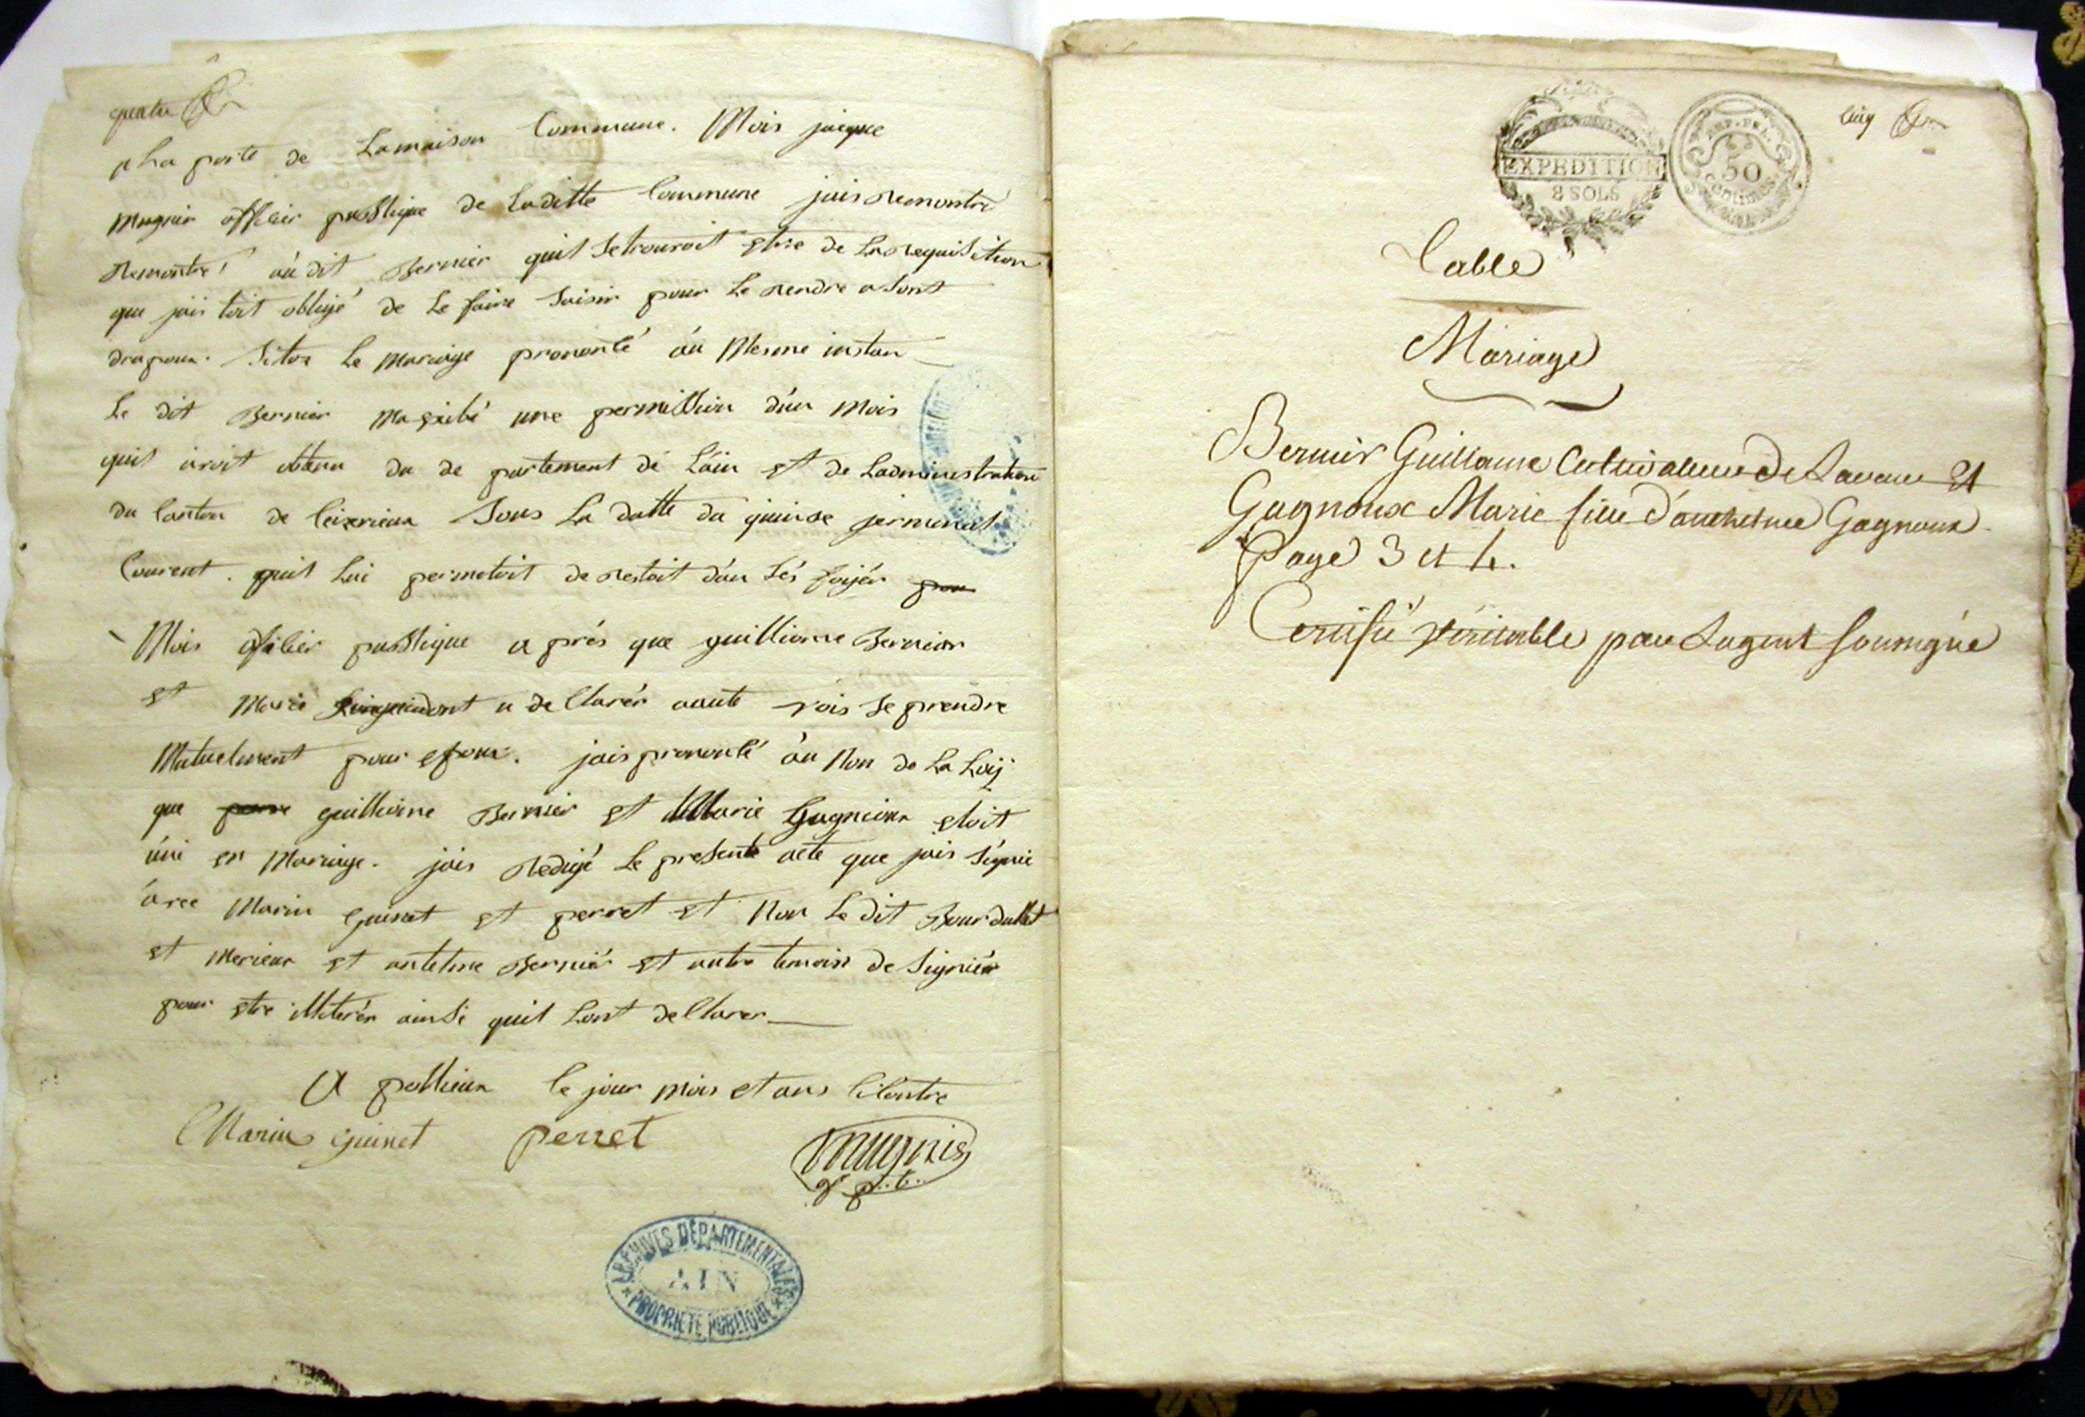 quatre
a La porte de Lamaison Commune. Mois jacque
mugnier officier publique de Laditte Commune jais Remontré
Remontré au dit Bernier quil Setrouvoit etre de La Requisition
que jais toit obligé de Le faire Saisir pour Le Rendre a Sont
drapeau. Sitot Le Mariage prononcé au Mesme instan
Le dit Bernier Ma exibé une permission d'un Mois
quil avoit obtenu du de partement de L'ain et de Ladministration
du Canton de Ceixerieux Sous La datte du quinse jerminal
Courent. quil Lui permetoit de Restoit dan Sés foijér
Mois officier publique a prés que guilliome Bernier
et Marie a de Clarér aaute vois Se prendre
Mutuelment pour epoux. jais prononcé au Non de La Loij
que guilliome Bernier et Marie Gagnieux etoit
uni en Mariage. jais Redigé Le presente acte que jais Signié
avec Marin guinet et perret et Non Le dit Bourdallet
et Merieux et antelme Berniér et autre temoin de Signiér
pour etre illiterér ainsi quil Lont de Clarer
A pollieux Le jour mois et ans Cicontre
Marin guinet perret mugnier
o. p. b.
ARCHIVES DÉPARTEMENTALES
AIN
PROPRIÉTÉ PUBLIQUE
EXPEDITION
8 SOLS
REP. FRA.
50
Centimes
Cinq
Table
Mariage
Bernier Guillaume Cultivateur de Lavour Et
Gagnoux Marie fille d'anthelme Gagnoux
Page 3 et 4.
Certifié véritable par Lagent Soussigné